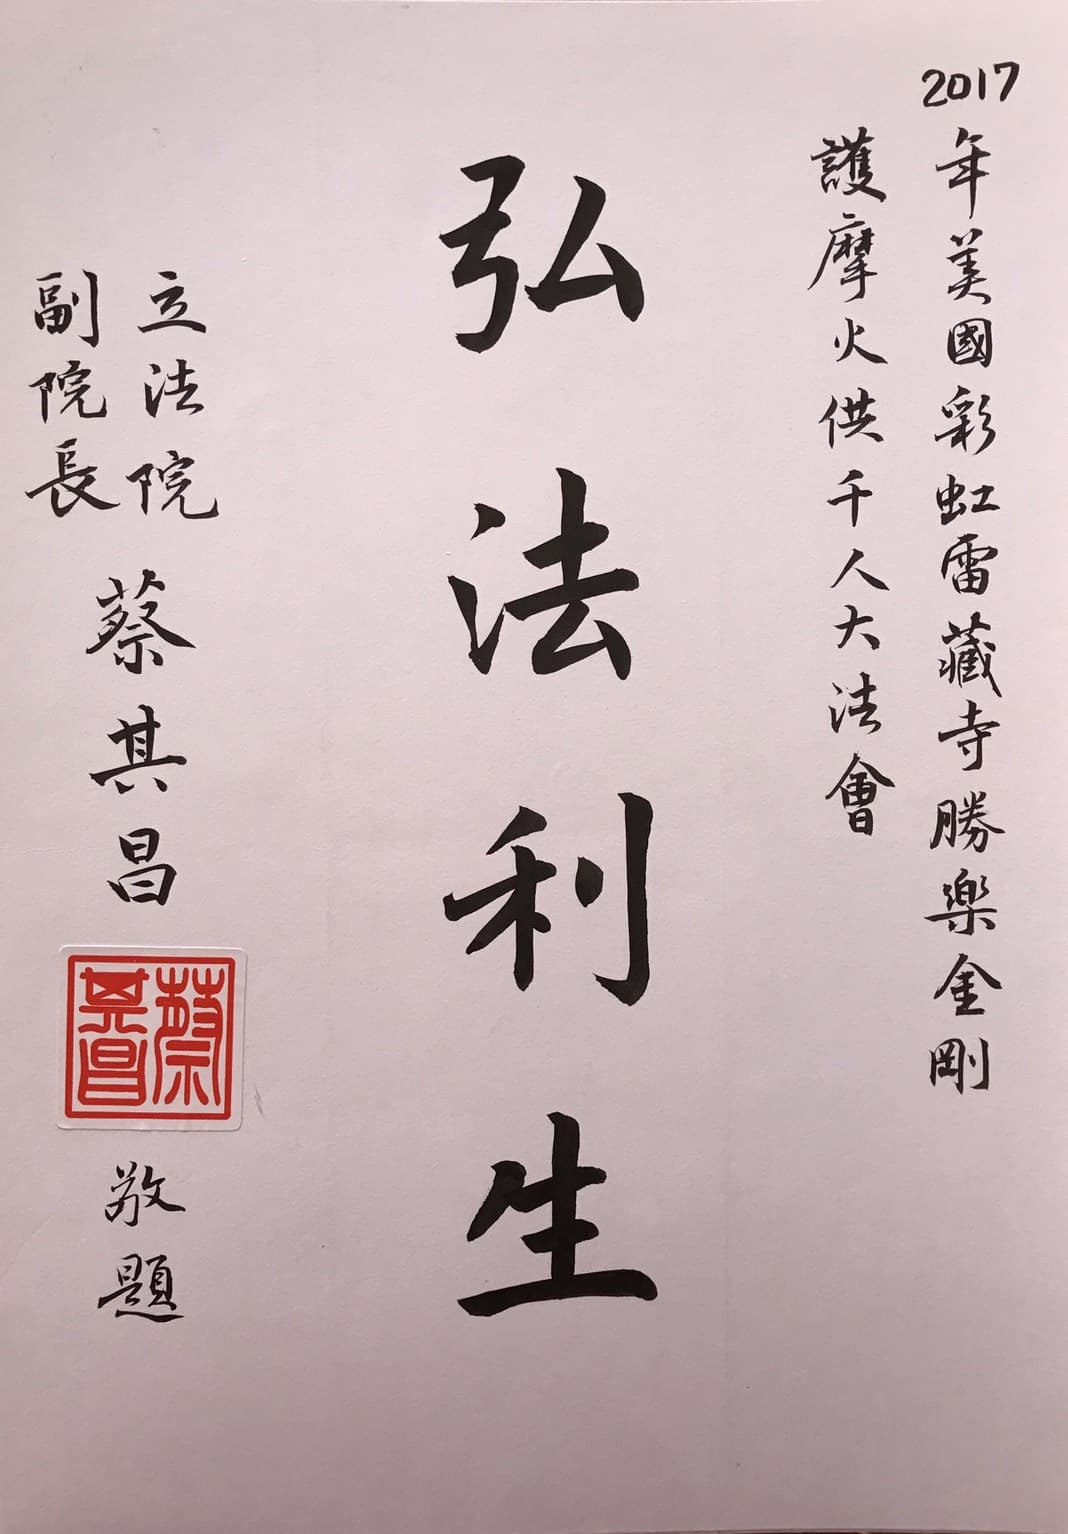 2017年美國彩虹雷藏寺勝樂金剛
護摩火供千人大法會
弘法利生
立法院
副院長
蔡其昌
蔡其昌
敬題